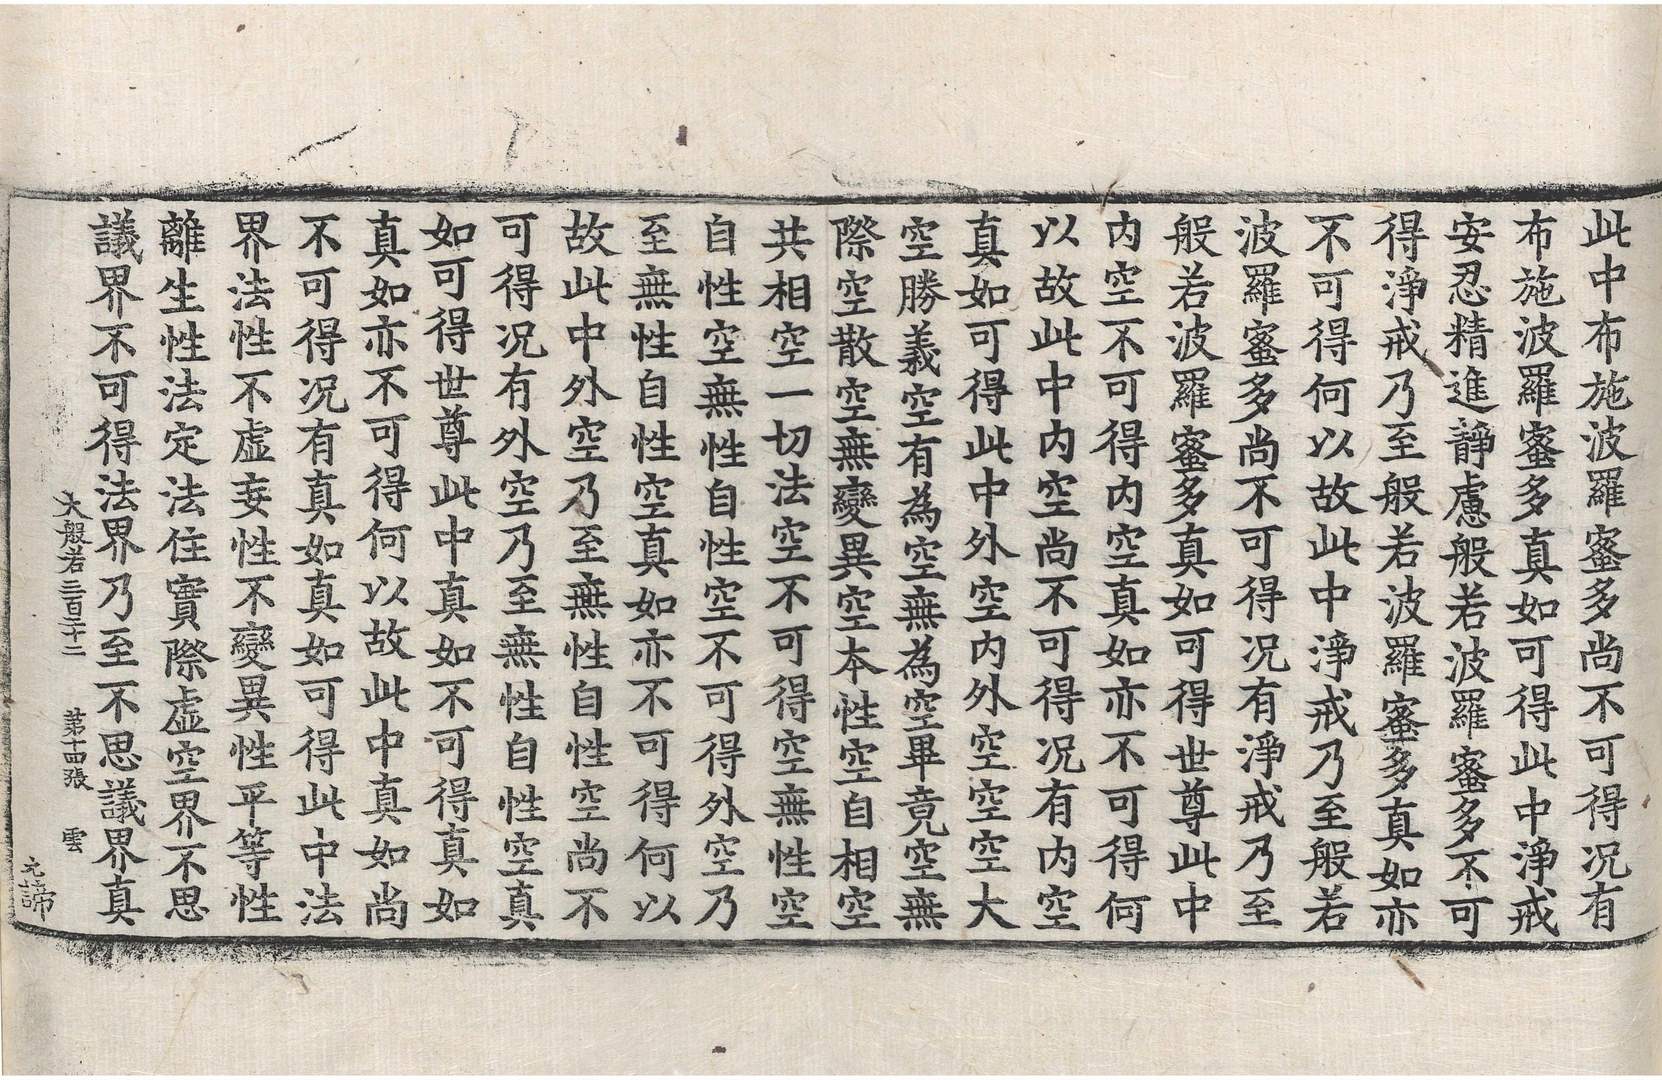 此中布施波羅蜜多尚不可得况有
布施波羅蜜多真如可得此中淨戒
安忍精進靜慮般若波羅蜜多不可
得淨戒乃至般若波羅蜜多真如亦
不可得何以故此中淨戒乃至般若
波羅蜜多尚不可得况有淨戒乃至
般若波羅蜜多真如可得世尊此中
内空不可得内空真如亦不可得何
以故此中内空尚不可得况有内空
真如可得此中外空内外空空空大
空勝義空有為空無為空畢竟空無
際空散空無變異空本性空自相空
共相空一切法空不可得空無性空
自性空無性自性空不可得外空乃
至無性自性空真如亦不可得何以
故此中外空乃至無性自性空尚不
可得况有外空乃至無性自性空真
如可得世尊此中真如不可得真如
真如亦不可得何以故此中真如尚
不可得况有真如真如可得此中法
界法性不虛妄性不變異性平等性
離生性法定法住實際虛空界不思
議界不可得法界乃至不思議界真
大般若三百二十二 第十四張 雲
元諦